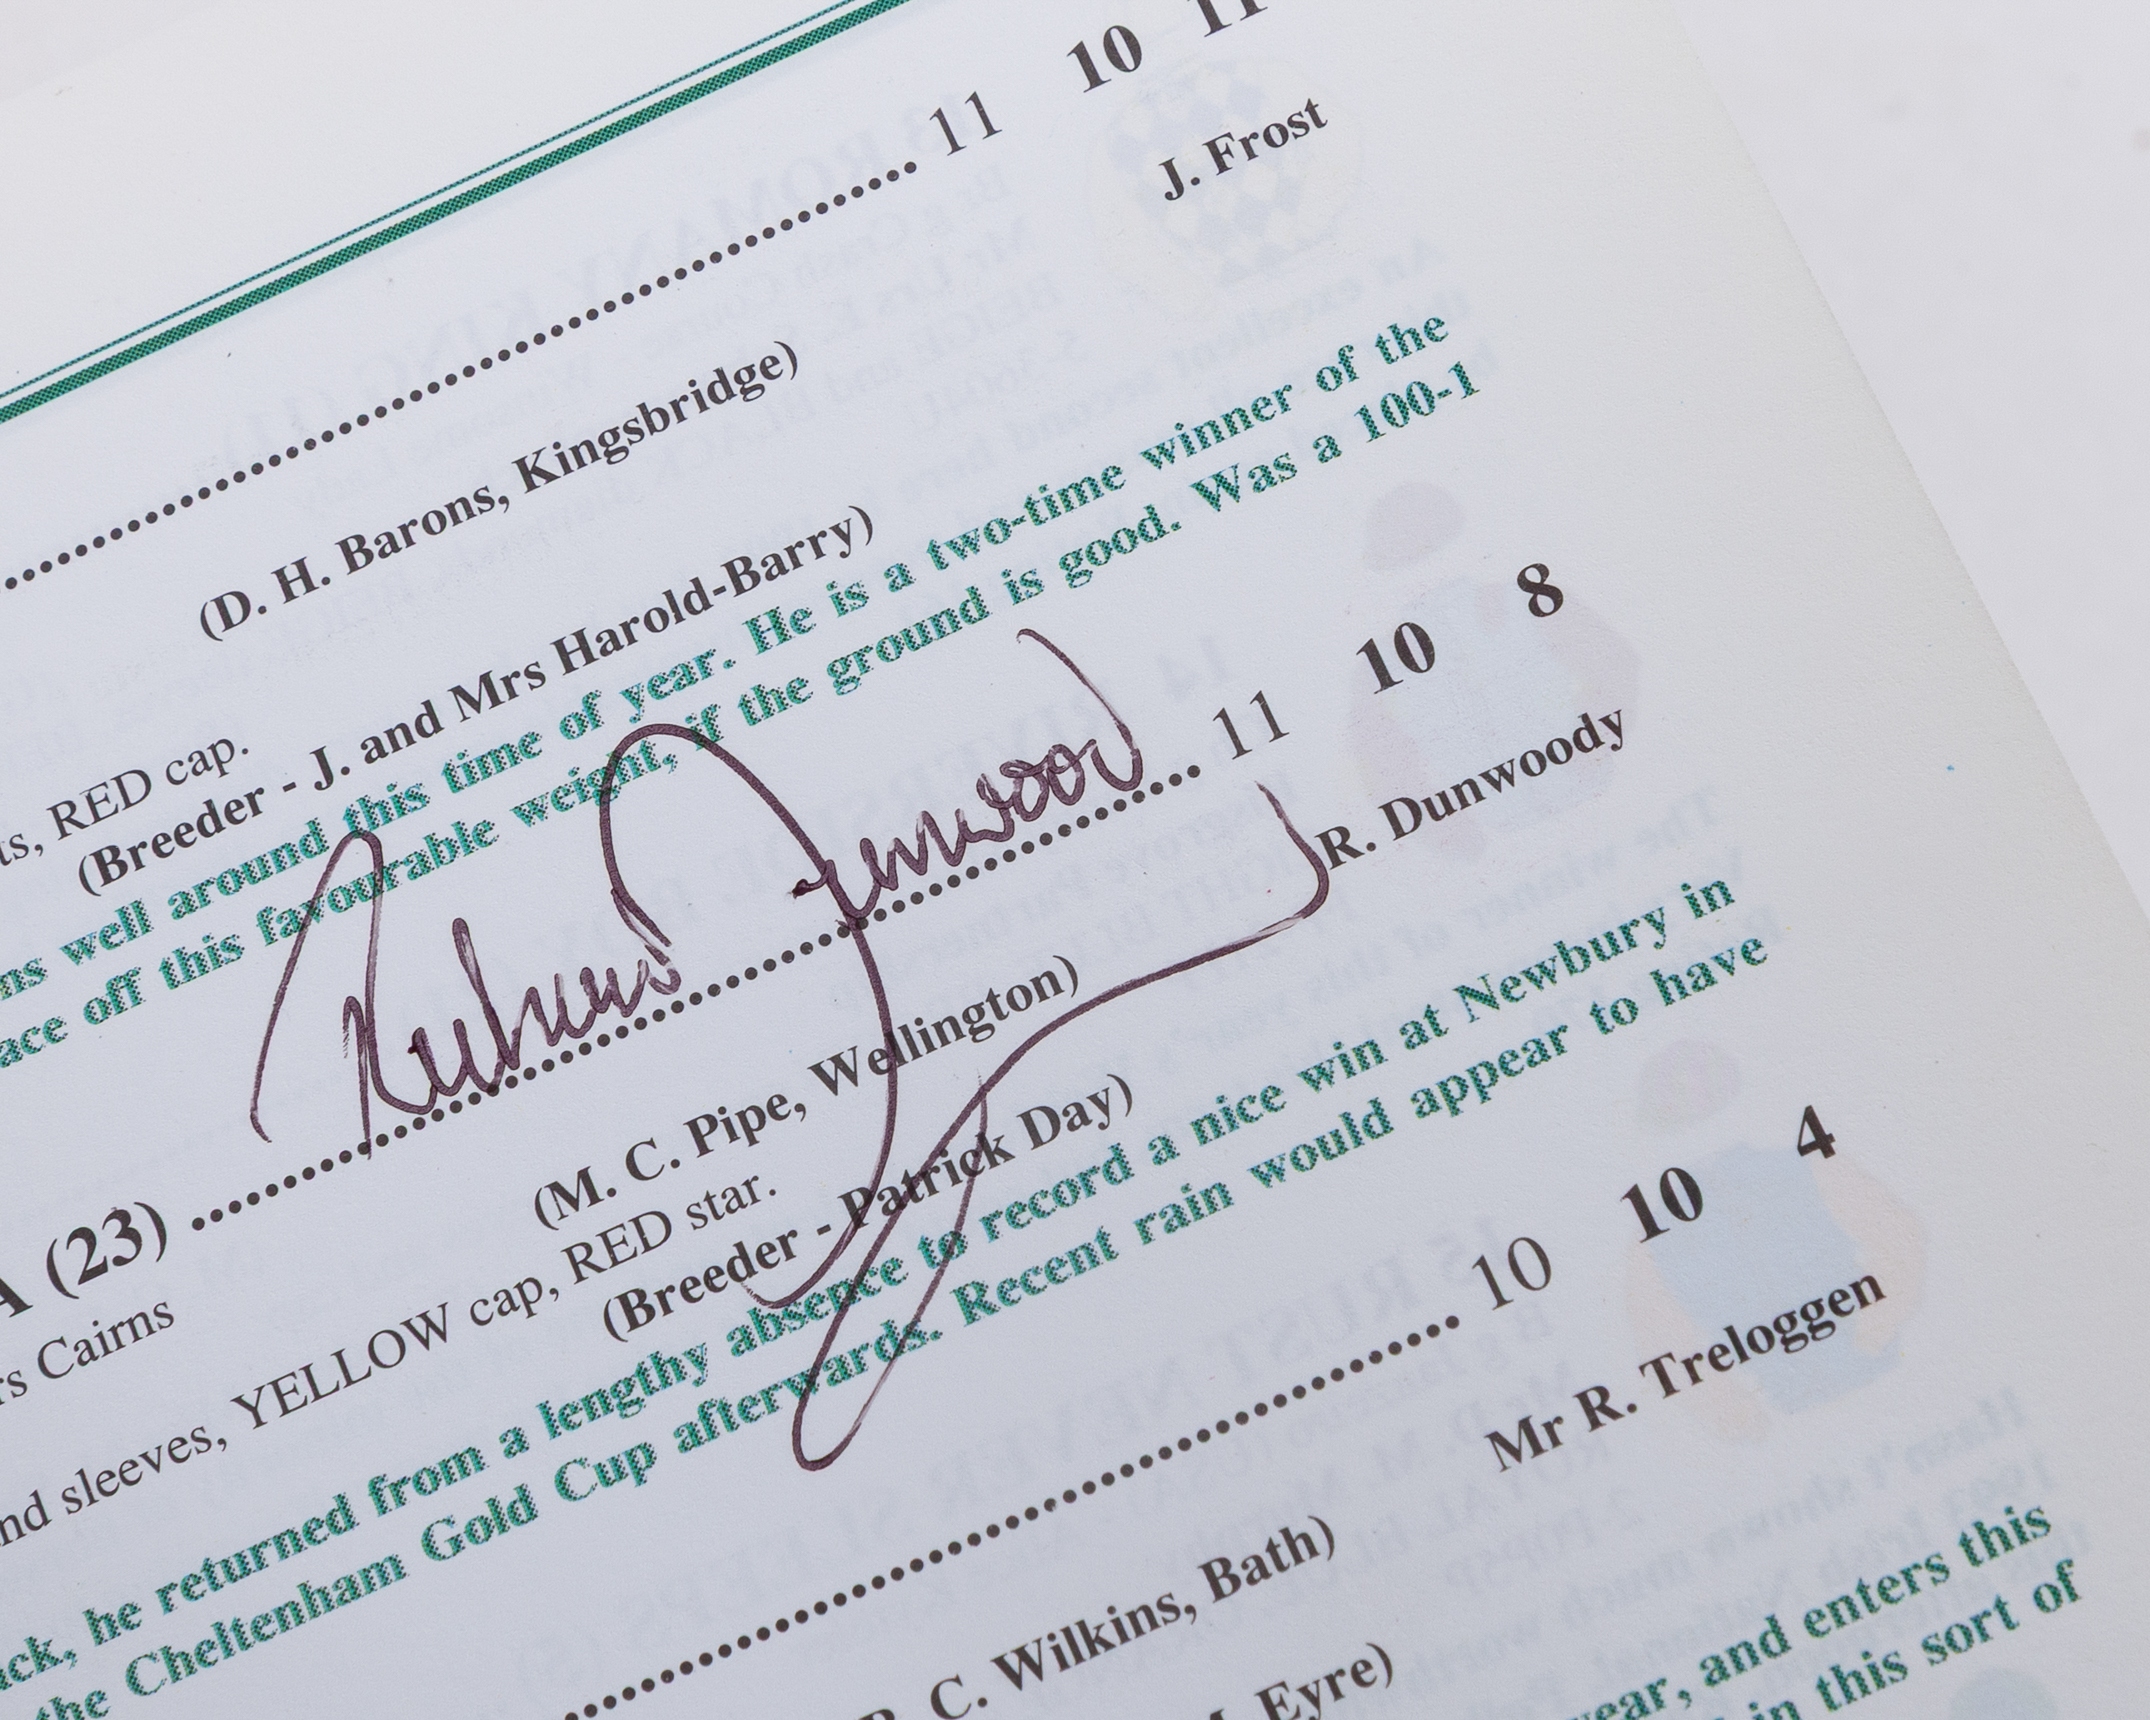 11 10 11
J. Frost
(D. H. Barons, Kingsbridge)
RED cap.
(Breeder - J. and Mrs Harold-Barry)
well around this time of year. He is a two-time winner of the
off this favourable weight, if the ground is good. Was a 100-1
Richard Dunwoody
A (23) 11 10 8
R. Dunwoody
Cairns
(M. C. Pipe, Wellington)
sleeves, YELLOW cap, RED star.
(Breeder - Patrick Day)
he returned from a lengthy absence to record a nice win at Newbury in
the Cheltenham Gold Cup afterwards. Recent rain would appear to have
10 10 4
Mr R. Treloggen
C. Wilkins, Bath)
Eyre)
year, and enters this
in this sort of